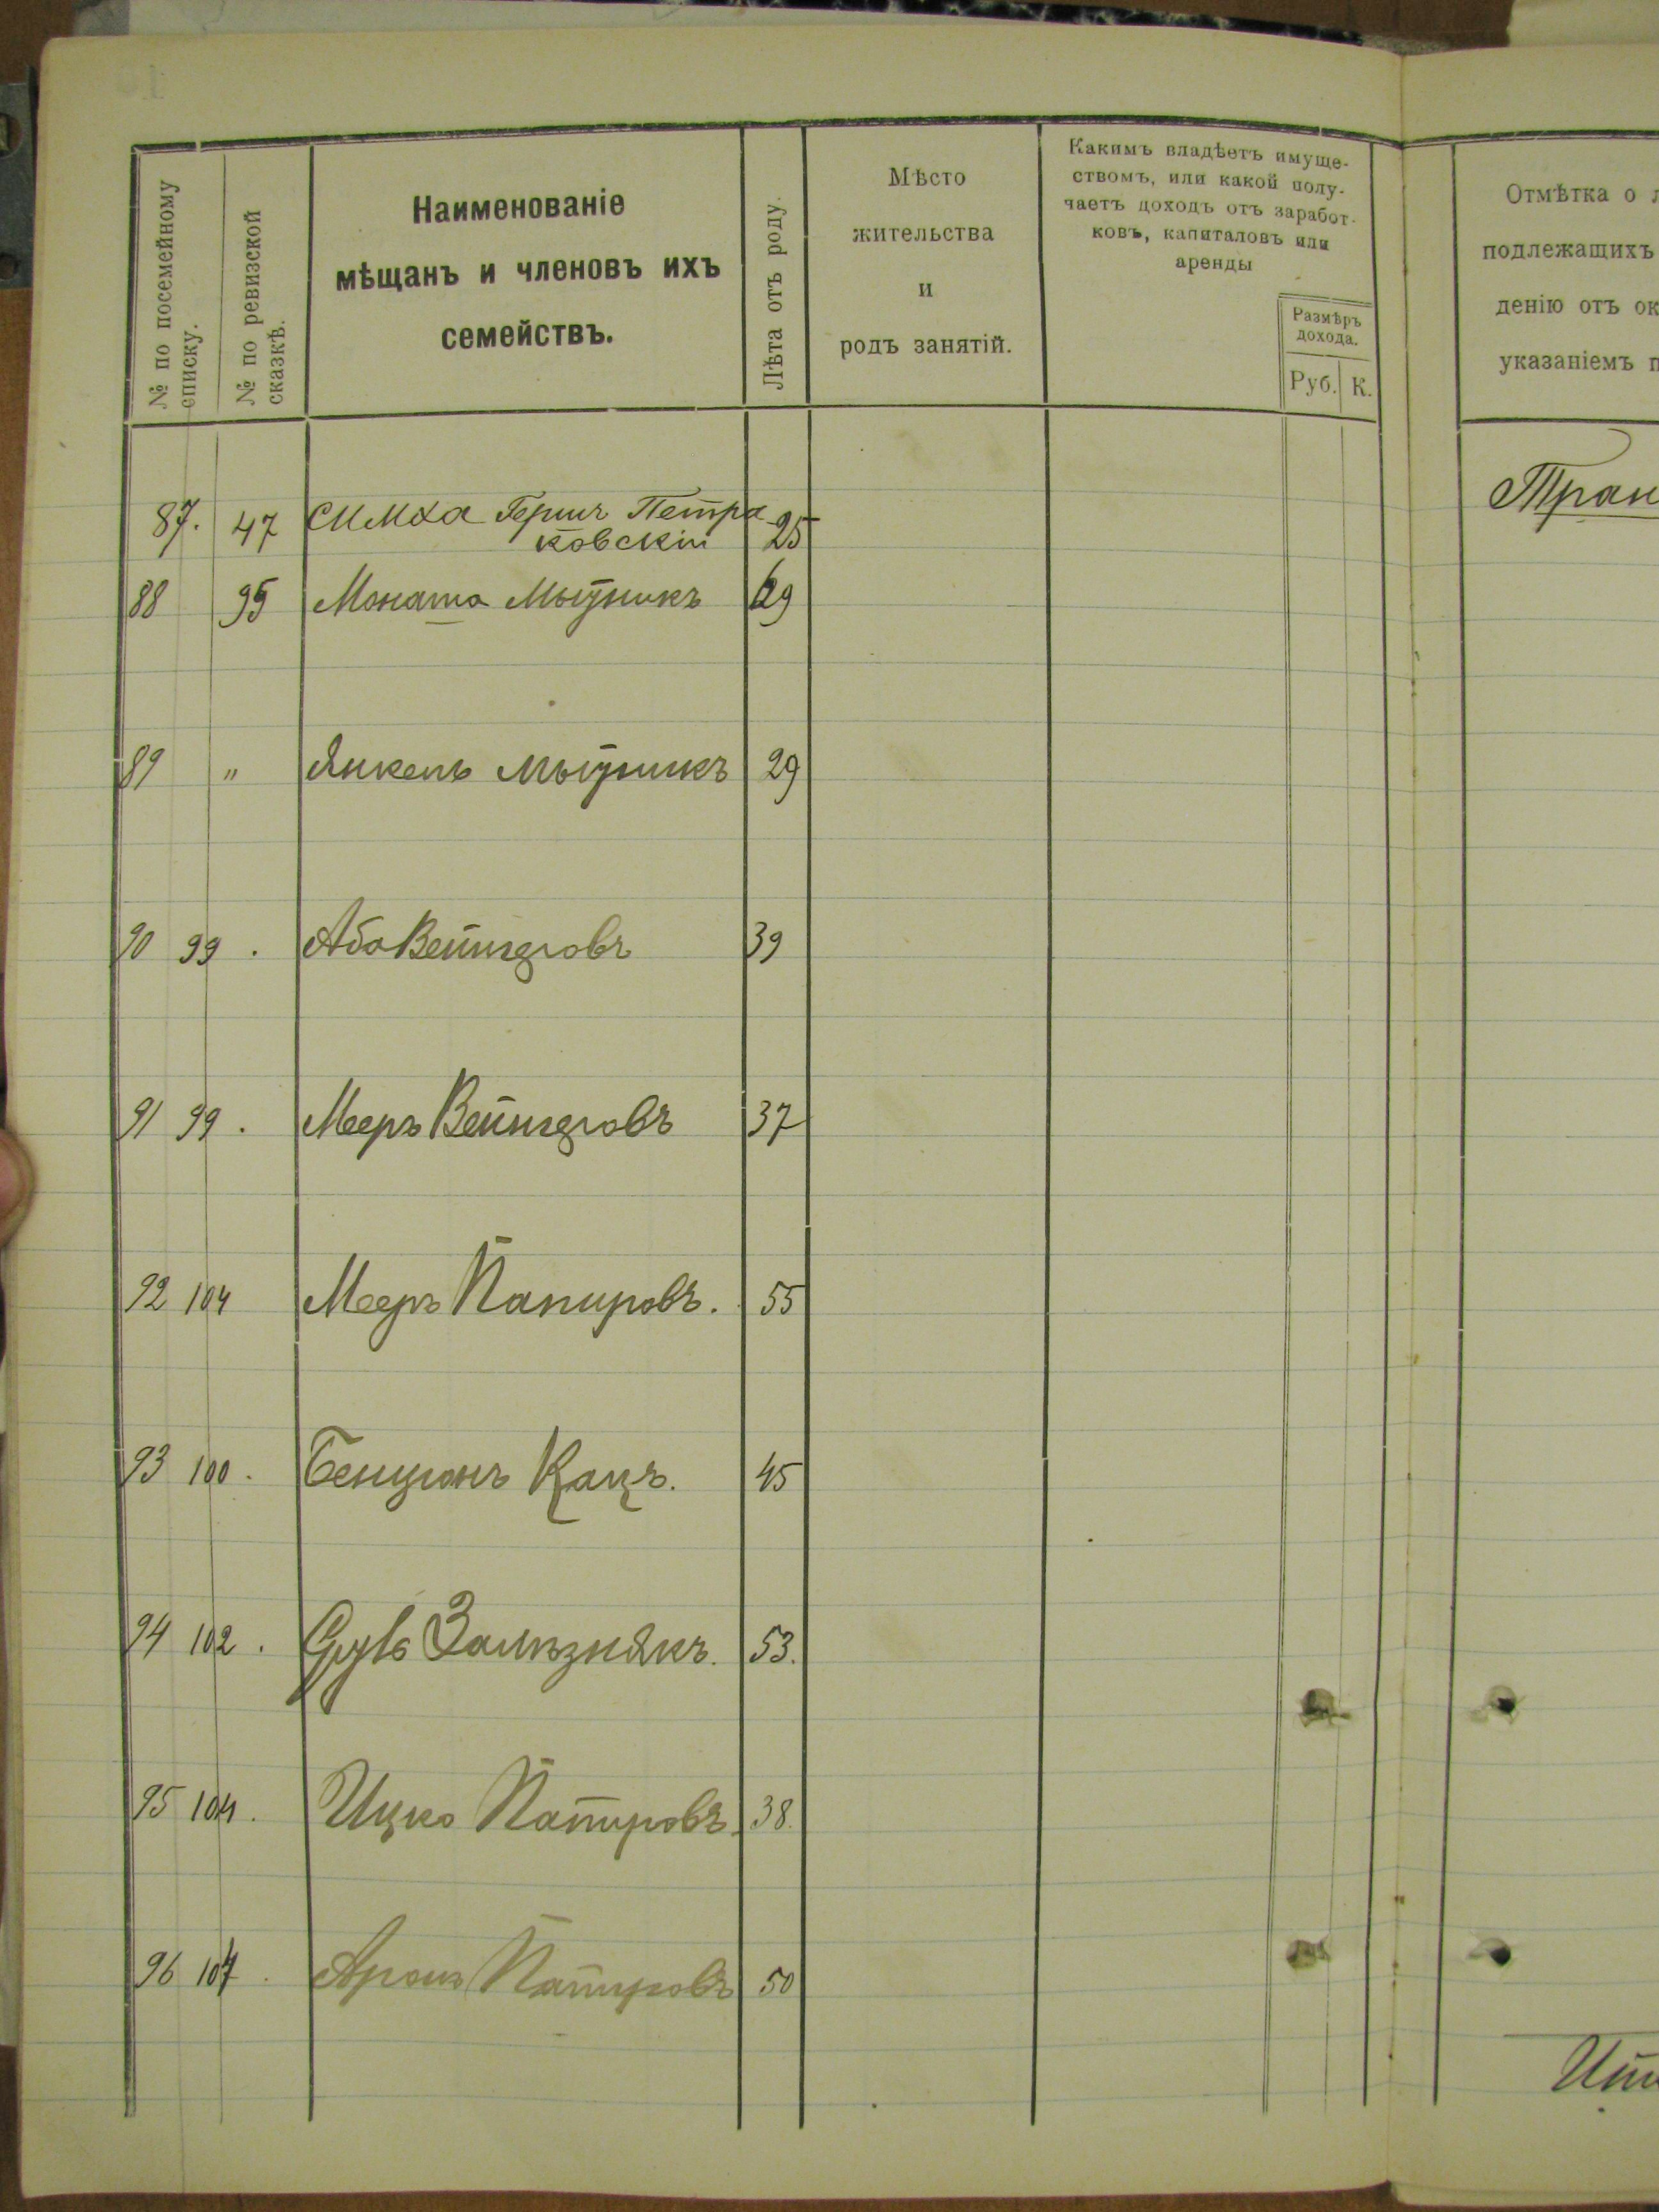 № по посемейному
списку.
№ по ревизской
сказкѣ.
Наименованіе
мѣщанъ и членовъ ихъ
семействъ.
Лѣта отъ роду.
Мѣсто
жительства
и
родъ занятій.
Какимъ владѣетъ имуще-
ствомъ, или какой полу-
чаетъ доходъ отъ заработ-
ковъ, капиталовъ или
аренды
Размѣръ
дохода.
Руб. К.
Отмѣтка о
подлежащихъ
денію отъ ок
указаніемъ п
Тран
87. 47 Симха Гершъ Петра 25
ковскій
88 95 Мытникъ 69
89 " Янкель Мытникъ 29
90 99 . Аба Вейнгдровъ 39
91 99 . Мееръ Вейнгдровъ 37
92 104 Мееръ Папировъ. 55
93 100 . Бенціонъ Кацъ. 45
94 102 . Залѣзнякъ. 53.
95 104 . Ицко Папировъ. 38.
96 107 . Аронъ Папировъ 50
Ито